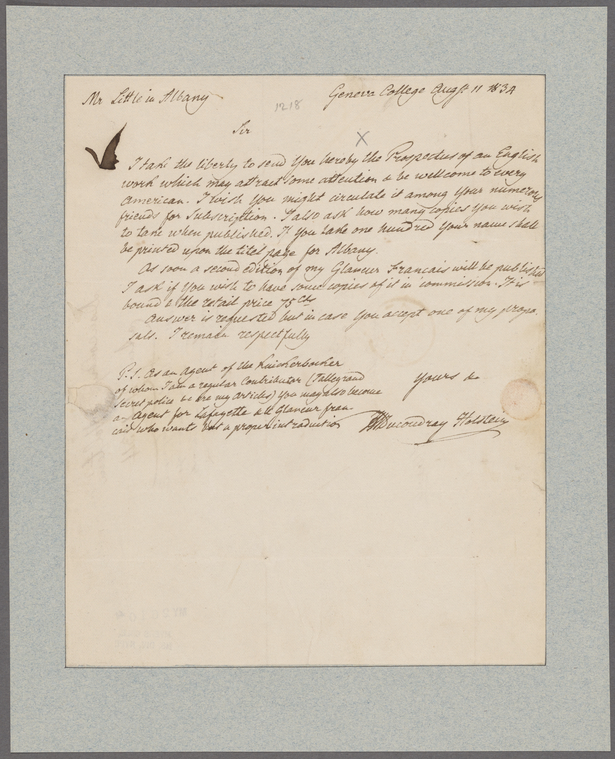 Mr Little in Albany
Geneva College Augst 11 1834
1218
Sir
X
I take the liberty to send you hereby the Prospectus of an English
work which may attract some attention & be wellcome to every
American. I wish you might circulate it among your numerous
friends for Subscription. I also ask how many copies you wish
to take when published. If you take one hundred your name shall
be printed upon the titel page for Albany.
As soon a second edition of my Glaneur Francais will be published
I ask if you wish to have some copies of it in commission. It is
bound & the retail price 75 cts
Answer is requested but in case you acept one of my propo
sals. I remain respectfully
P.S. As an Agent of the Knickerbocker
of whom I am a regular Contributor (Talleyrand
Secret police &c are my Articles) you may also become
a Agent for Lafayette & Glaneur fran
cais who wants but a proper introduction
Yours &
Ducoudray Holstein